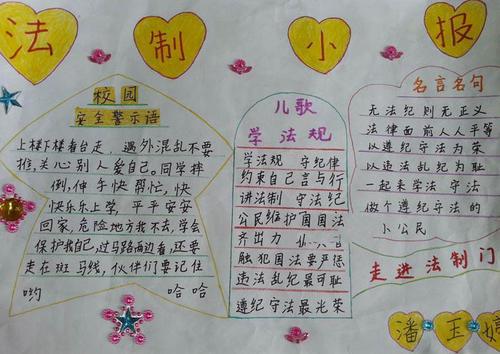 法制小报
校园
安全警示语
上楼下楼着台走 遇外混乱不要
推,关心别人爱自己。同学摔
倒,伸手快帮忙,快
快乐乐上学,平平安安
回家,危险地方我不去,学会
保护我自己,过马路两边看,还要
走在斑马线,伙伴们要记住
哟 哈哈
儿歌
学法规
学法规 守纪律
约束自己言与行
讲法制 守法纪
公民维护国国法
齐出力
触犯国法要严惩
违法乱纪最可耻
遵纪守法最光荣
名言名句
无法纪则无正义
法律面前人人平等
以遵纪守法为荣
以违法乱纪为耻
一起来学法 守法
做个遵纪守法的
小公民
走进法制门
潘玉婷